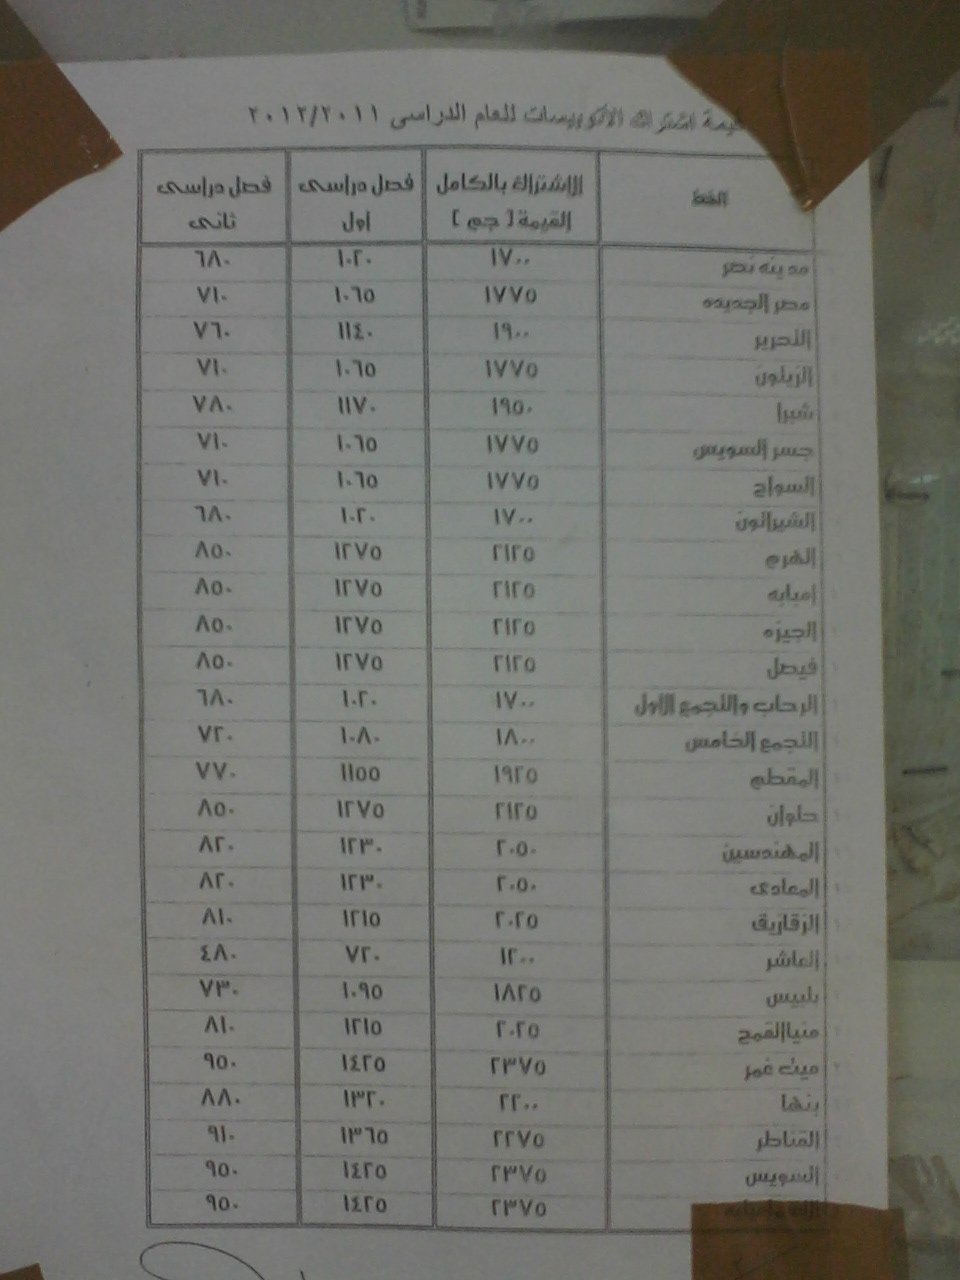 قيمة اشتراك الاتوبيسات للعام الدراسى ٢٠١٢/٢٠١١
الخط الاشتراك بالكامل القيمة [ جم ] فصل دراسى اول فصل دراسى ثانى
مدينه نصر ١٧٠٠ ١٠٢٠ ٦٨٠
مصر الجديده ١٧٧٥ ١٠٦٥ ٧١٠
التحرير ١٩٠٠ ١١٤٠ ٧٦٠
الزيتون ١٧٧٥ ١٠٦٥ ٧١٠
شبرا ١٩٥٠ ١١٧٠ ٧٨٠
جسر السويس ١٧٧٥ ١٠٦٥ ٧١٠
السواح ١٧٧٥ ١٠٦٥ ٧١٠
الشيراتون ١٧٠٠ ١٠٢٠ ٦٨٠
الهرم ٢١٢٥ ١٢٧٥ ٨٥٠
إمبابه ٢١٢٥ ١٢٧٥ ٨٥٠
الجيزه ٢١٢٥ ١٢٧٥ ٨٥٠
فيصل ٢١٢٥ ١٢٧٥ ٨٥٠
الرحاب والتجمع الاول ١٧٠٠ ١٠٢٠ ٦٨٠
التجمع الخامس ١٨٠٠ ١٠٨٠ ٧٢٠
المقطم ١٩٢٥ ١١٥٥ ٧٧٠
حلوان ٢١٢٥ ١٢٧٥ ٨٥٠
المهندسين ٢٠٥٠ ١٢٣٠ ٨٢٠
المعادى ٢٠٥٠ ١٢٣٠ ٨٢٠
الزقازيق ٢٠٢٥ ١٢١٥ ٨١٠
العاشر ١٢٠٠ ٧٢٠ ٤٨٠
بلبيس ١٨٢٥ ١٠٩٥ ٧٣٠
منيا القمح ٢٠٢٥ ١٢١٥ ٨١٠
ميت غمر ٢٣٧٥ ١٤٢٥ ٩٥٠
بنها ٢٢٠٠ ١٣٢٠ ٨٨٠
القناطر ٢٢٧٥ ١٣٦٥ ٩١٠
السويس ٢٣٧٥ ١٤٢٥ ٩٥٠
٢٣٧٥ ١٤٢٥ ٩٥٠